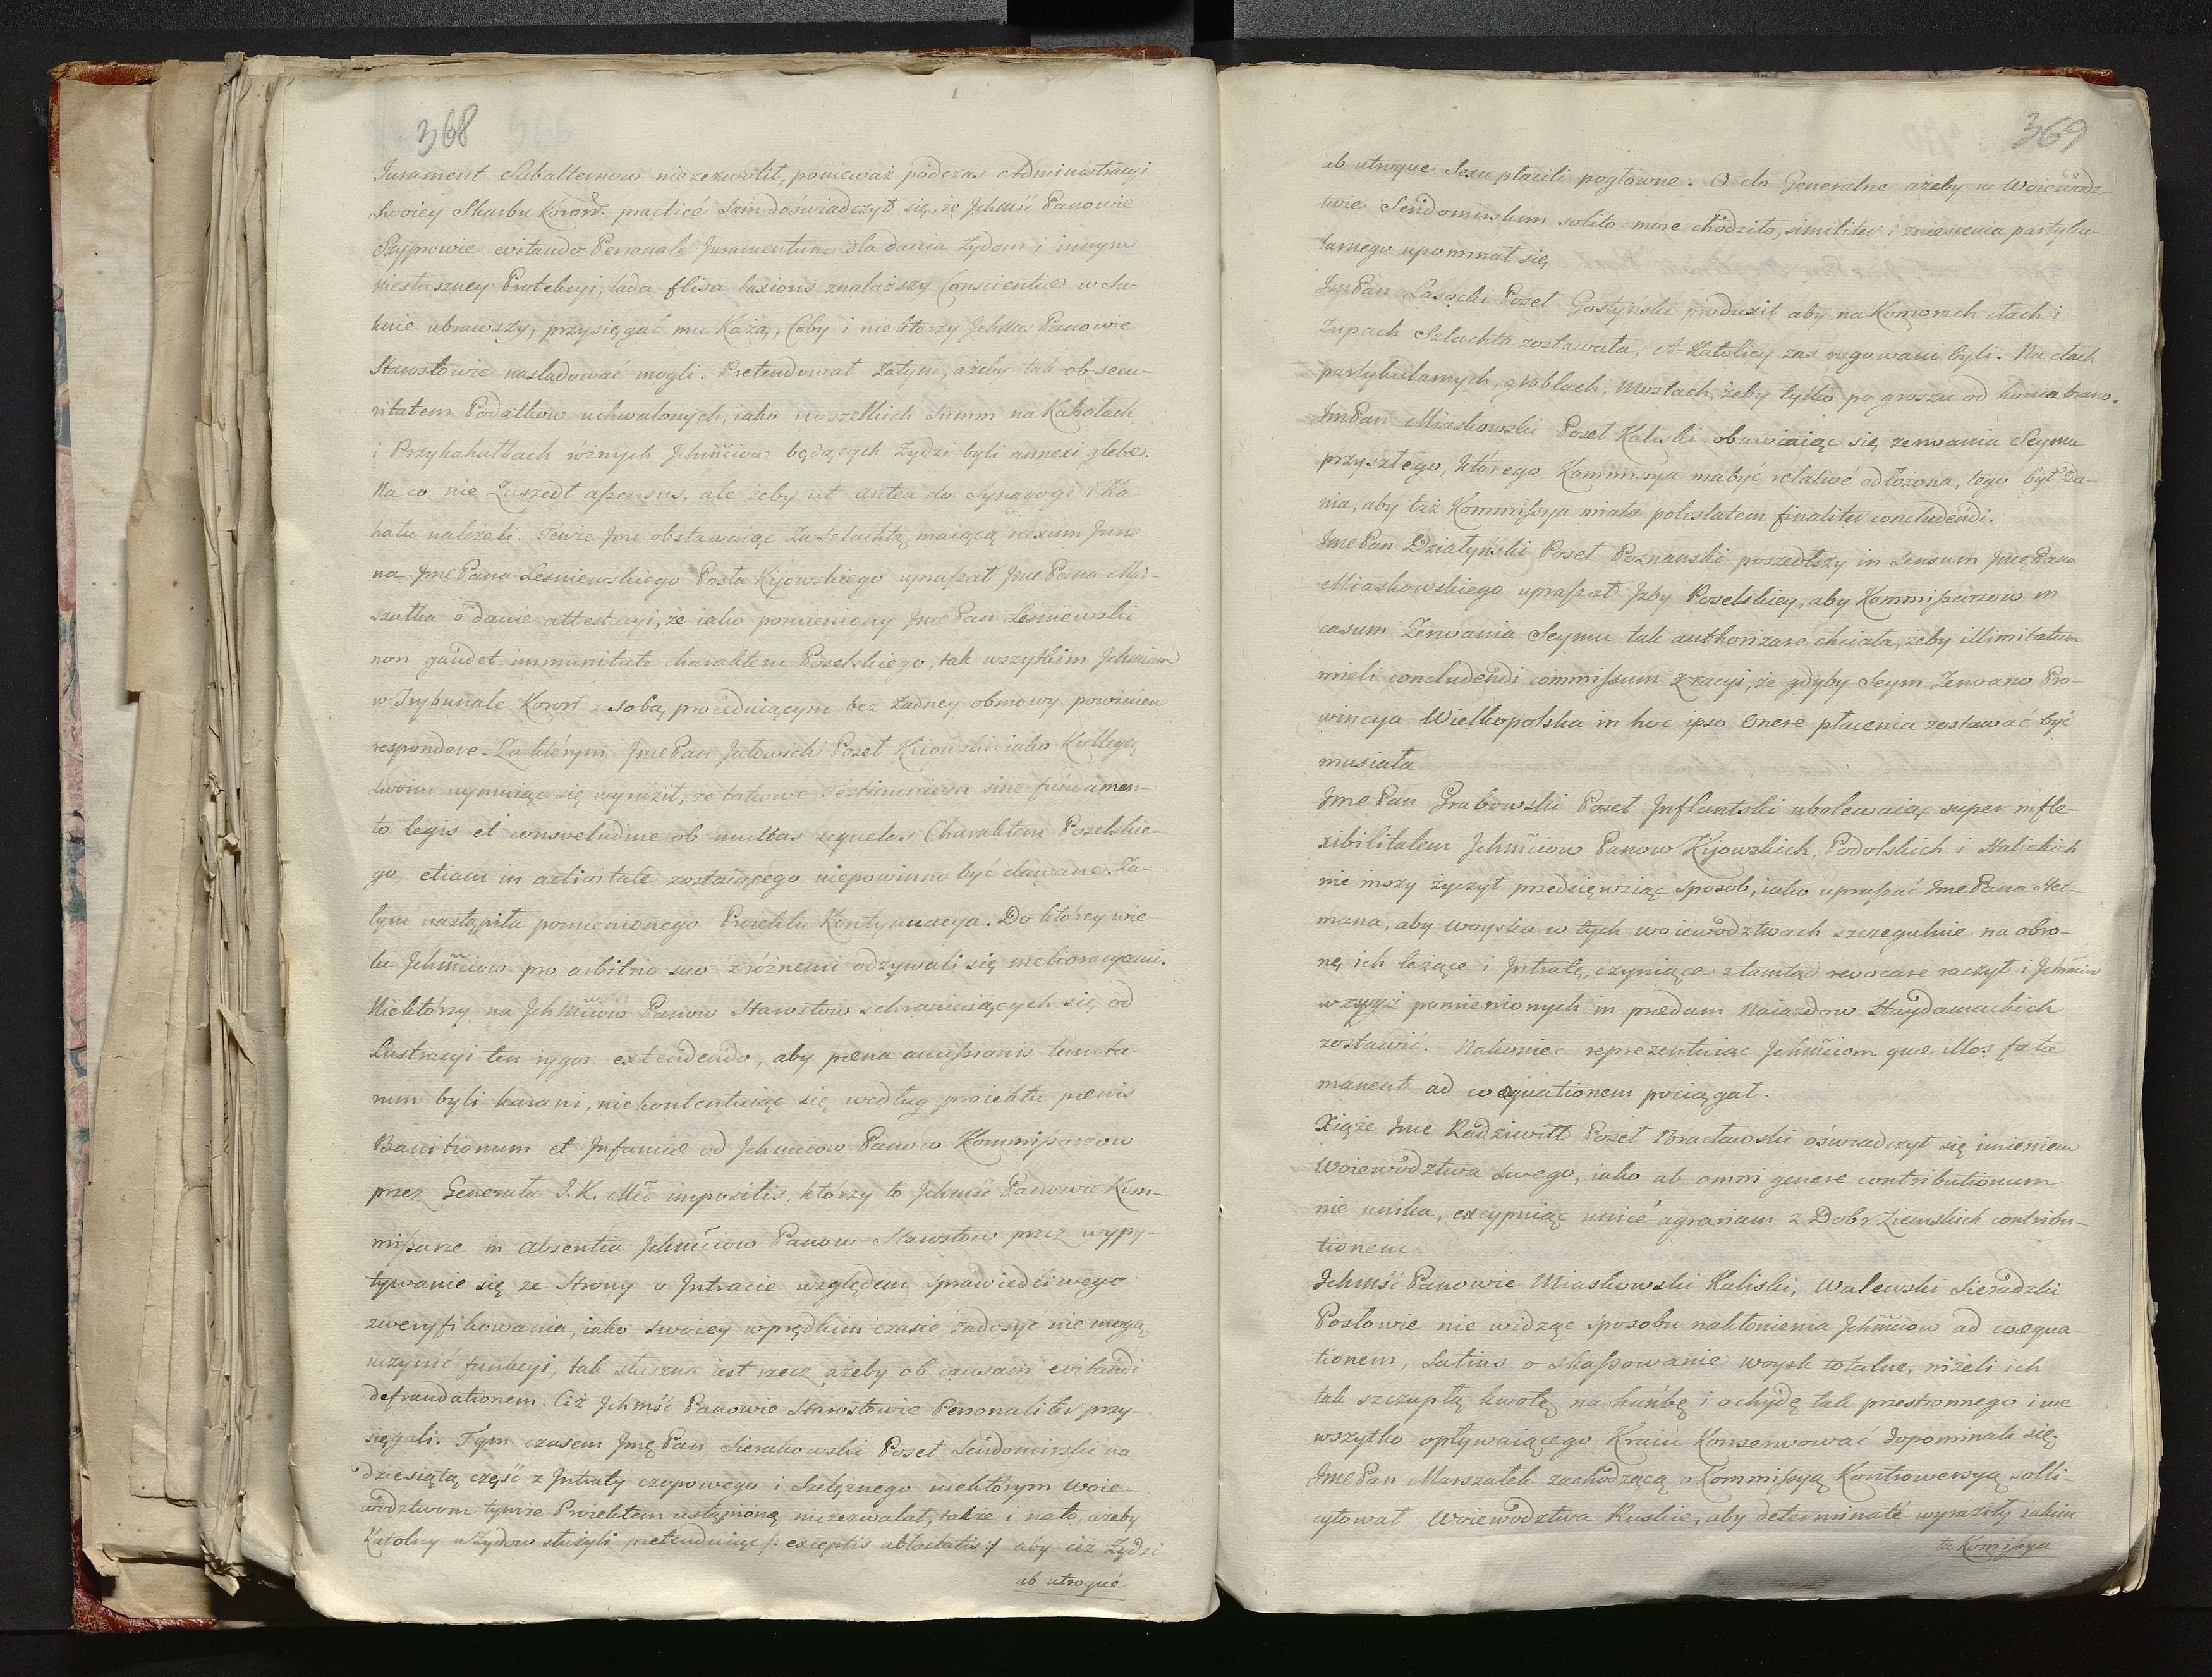 368
Jurament Subalternow niezezwolił, ponieważ podczas Administracyi
Swoiey Skarbu Koronn. practicé sam doświadczył się, że Jchmść Panowie
Szyprowie evitando Personale Juramentum dla dania Zydom i innym
niesłuszney Protekcyi, lada flisa laxioris znalazszy Conscientiæ w Su-
knie ubrawszy, przysięgać mu Każą, Coby i niektorzy Jchmć Panowie
Starostowie nasladować mogli. Pretendował zatym, ażeby tak ob secu-
ritatem Podatkow uchwalonych, iako i wszelkich Summ na Kahałach
i Przykahałkach różnych Jchmciow będących Zydzi byli annexi glebæ.
Na co nie Zaszedł assensus, ale żeby ut antea do Synagogi i Ka-
hału należeli. Tenże Jmć obstawaiąc za Szlachtą maiącą nexum Juris
na JmćPana Lesniewskiego Posła Kijowskiego upraszał Jmć Pana Mar-
szałka o danie attestacyi, że iako pomieniony JmćPan Lesniewski
non gaudet immunitate charakteru Poselskiego, tak wszytkim Jchmciom
w Trybunale Koron z sobą proceduiącym bez żadney obmowy powinien
respondere. Za którym JmćPan Jełowicki Poseł Kiiowski iako Kollegą
swoim uymuiąc się wyraził, że takowe Testimonium sine fundamen-
to legis et consvetudine ob multas sequelas Charakteru Poselskie-
go, etiam in activitate zostaiącego niepowinno być dawane. Za-
tym nastąpiła pomienionego Proiektu Kontynuacya. Do którey wie-
lu Jchmciow pro arbitrio suo z różnemi odzywali się melioracyami.
Niektórzy na Jchmciow Panow Starostow schraniaiących się od
Lustracyi ten rygor extendendo, aby pœna amissionis tenuta-
rum byli karani, niekontentuiąc się według proiektu pœnis
Banitionum et Infamiæ od Jchmciow Panow Kommissarzow
przez Generała J. K. Mci impositis, którzy to Jchmść Panowie Kom-
missarze in absentia Jchmciow Panow Starostow przez wypy-
tywanie się ze Strony o Jntracie względem sprawiedliwego
zweryfikowania, iako swoiey wprędkim czasie zadosyć nie mogą
uczynić funkcyi, tak słuszna iest rzecz ażeby ob causam evitandi
defraudationem. Ciż Jchmść Panowie Starostowie Personaliter przy-
sięgali. Tym czasem Jmć Pan Sierakowski Poseł Sendomirski na
dziesiątą część z Jntraty czopowego i Szelężnego niektórym Woie-
wodztwom tymże Proiektem ustąpioną niezezwalał, także i na to, ażeby
Katolicy u Zydow służyli pretenduiąc /: exceptis ablactatis :/ aby ciż Zydzi
ab utroque
369
ab utroque Sexu płacili pogłówne. O cło Generalne ażeby w Woiewodz-
twie Sendomirskim solito more chodziło, similiter i zniesienia partyku-
larnego upominał się
JmPan Lasocki Poseł Gostyński produxit aby na Komorach cłach i
Zupach Szlachta zostawała, A-Katolicy zas rugowani byli. Na cłach
partykularnych, groblach, Mostach, żeby tylko po groszu od konia brano.
JmPan Miaskowski Poseł Kaliski obawiaiąc się zerwania Seymu
przyszłego, którego Kommisya ma być relativé odłożona, tego był Zda-
nia, aby taż Kommissya miała potestatem finaliter concludendi.
Jmć Pan Działyński Poseł Poznanski poszedłszy in sensum Jmć Pana
Miaskowskiego upraszał Jzby Poselskiey, aby Kommissarzow in
casum Zerwania Seymu tak authorizare chciała, żeby illimitatum
mieli concludendi commissum z racyi, że gdyby Seym Zerwano Pro-
wincya Wielkopolska in hoc ipso Onere płacenia zostawać być
musiała
Jmć Pan Grabowski Poseł Jnflantski ubolewaiąc super infle-
xibilitatem Jchmciow Panow Kijowskich, Podolskich i Halickich
nie inszy życzył przedsięwziąc sposob, iako upraszać Jmć Pana Het-
mana, aby woyska w tych woiewodztwach szczegulnie na obro-
nę ich leżące i Jntratę czyniące ztamtąd revocare raczył i Jchmciow
wzwyż pomienionych in prædam Naiazdow Haydamackich
zostawić. Nakoniec reprezentuiąc Jchmciom quæ illos fata
manent ad coæquationem pociągał.
Xiąże Jmć Radziwiłł Poseł Bracławski oświadczył się imieniem
Woiewodztwa swego, iako ab omni genere contributionum
nie unika, excypuiąc unicé agrariam z Dobr Ziemskich contribu-
tionem
Jchmść Panowie Miaskowski Kaliski, Walewski Sieradzki
Posłowie nie widząc sposobu nakłonienia Jchmciow ad coæqua-
tionem, Satius o skassowanie woysk totalne, niżeli ich
tak szczupłą kwotę na hańbę i ochydę tak przestronnego i we
wszytko opływaiącego Kraiu Konserwować dopominali się.
Jmć Pan Marszałek zachodzącą o Kommissyą Kontrowersyą solli-
cytował Woiewodztwa Ruskie, aby determinaté wyraziły iakim
ta Komissya